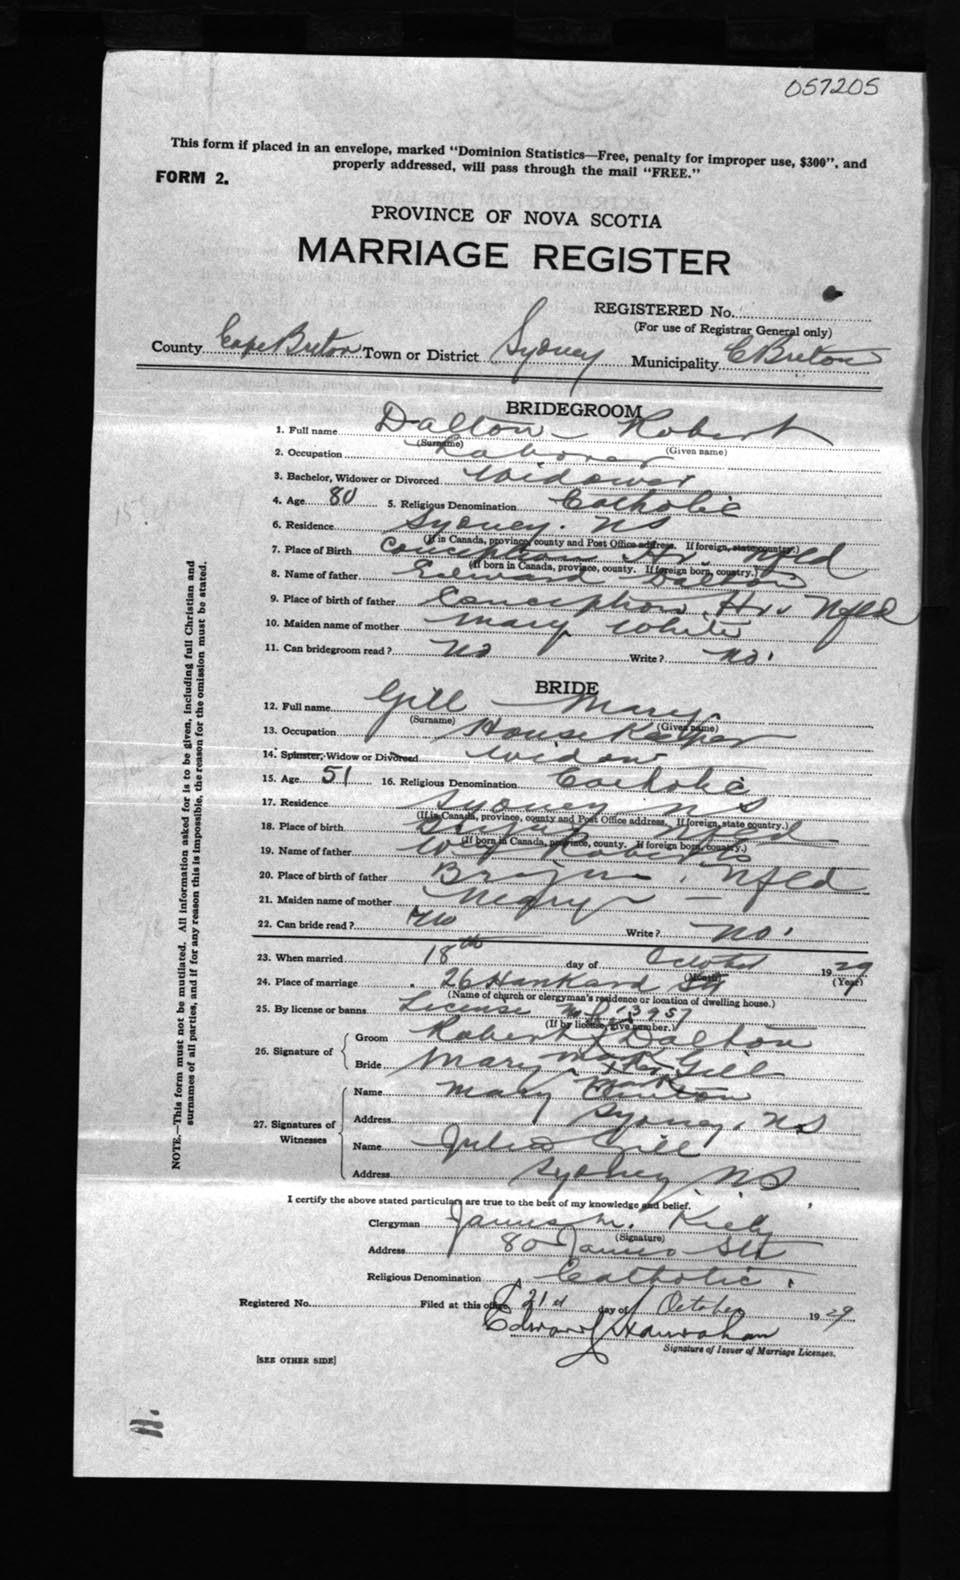 057205
This form if placed in an envelope, marked "Dominion Statistics—Free, penalty for improper use, $300", and
properly addressed, will pass through the mail "FREE."
FORM 2.
PROVINCE OF NOVA SCOTIA
MARRIAGE REGISTER
REGISTERED No.
(For use of Registrar General only)
County Cape Breton Town or District Sydney Municipality C Breton
BRIDEGROOM
1. Full name Dalton Robert
(Surname) (Given name)
2. Occupation Laborer
3. Bachelor, Widower or Divorced Widower
4. Age 80 5. Religious Denomination Catholic
6. Residence Sydney. NS
(If in Canada, province, county and Post Office address. If foreign, state country.)
7. Place of Birth Conception Hr. Nfld
(If born in Canada, province, county. If foreign born, country.)
8. Name of father Edward Dalton
9. Place of birth of father Conception Hr. Nfld
10. Maiden name of mother Mary White
11. Can bridegroom read? No Write? No.
BRIDE
12. Full name Gill Mary
(Surname) (Given name)
13. Occupation House Keeper
14. Spinster, Widow or Divorced Widow
15. Age 51 16. Religious Denomination Catholic
17. Residence Sydney NS
(If in Canada, province, county and Post Office address. If foreign, state country.)
18. Place of birth Brigus Nfld
(If born in Canada, province, county. If foreign born, country.)
19. Name of father Wm Roberts
20. Place of birth of father Brigus. Nfld
21. Maiden name of mother Mary —
22. Can bride read? No Write? No.
23. When married 18th day of October 1929
(Month) (Year)
24. Place of marriage 26 Hankard St
(Name of church or clergyman's residence or location of dwelling house.)
25. By license or banns License 13957
(If by license, give number.)
26. Signature of
Groom Robert X Dalton
Bride Mary X Gill
mark
27. Signatures of Witnesses
Name Mary
Address Sydney. NS
Name Gill
Address Sydney NS
I certify the above stated particulars are true to the best of my knowledge and belief.
Clergyman James M. Kiely
(Signature)
Address 80 James St
Religious Denomination Catholic.
Registered No. Filed at this office 21st day of October 1929
Edward Hanrahan
Signature of Issuer of Marriage Licenses.
[SEE OTHER SIDE]
NOTE.—This form must not be mutilated. All information asked for is to be given, including full Christian and
surnames of all parties, and if for any reason this is impossible, the reason for the omission must be stated.